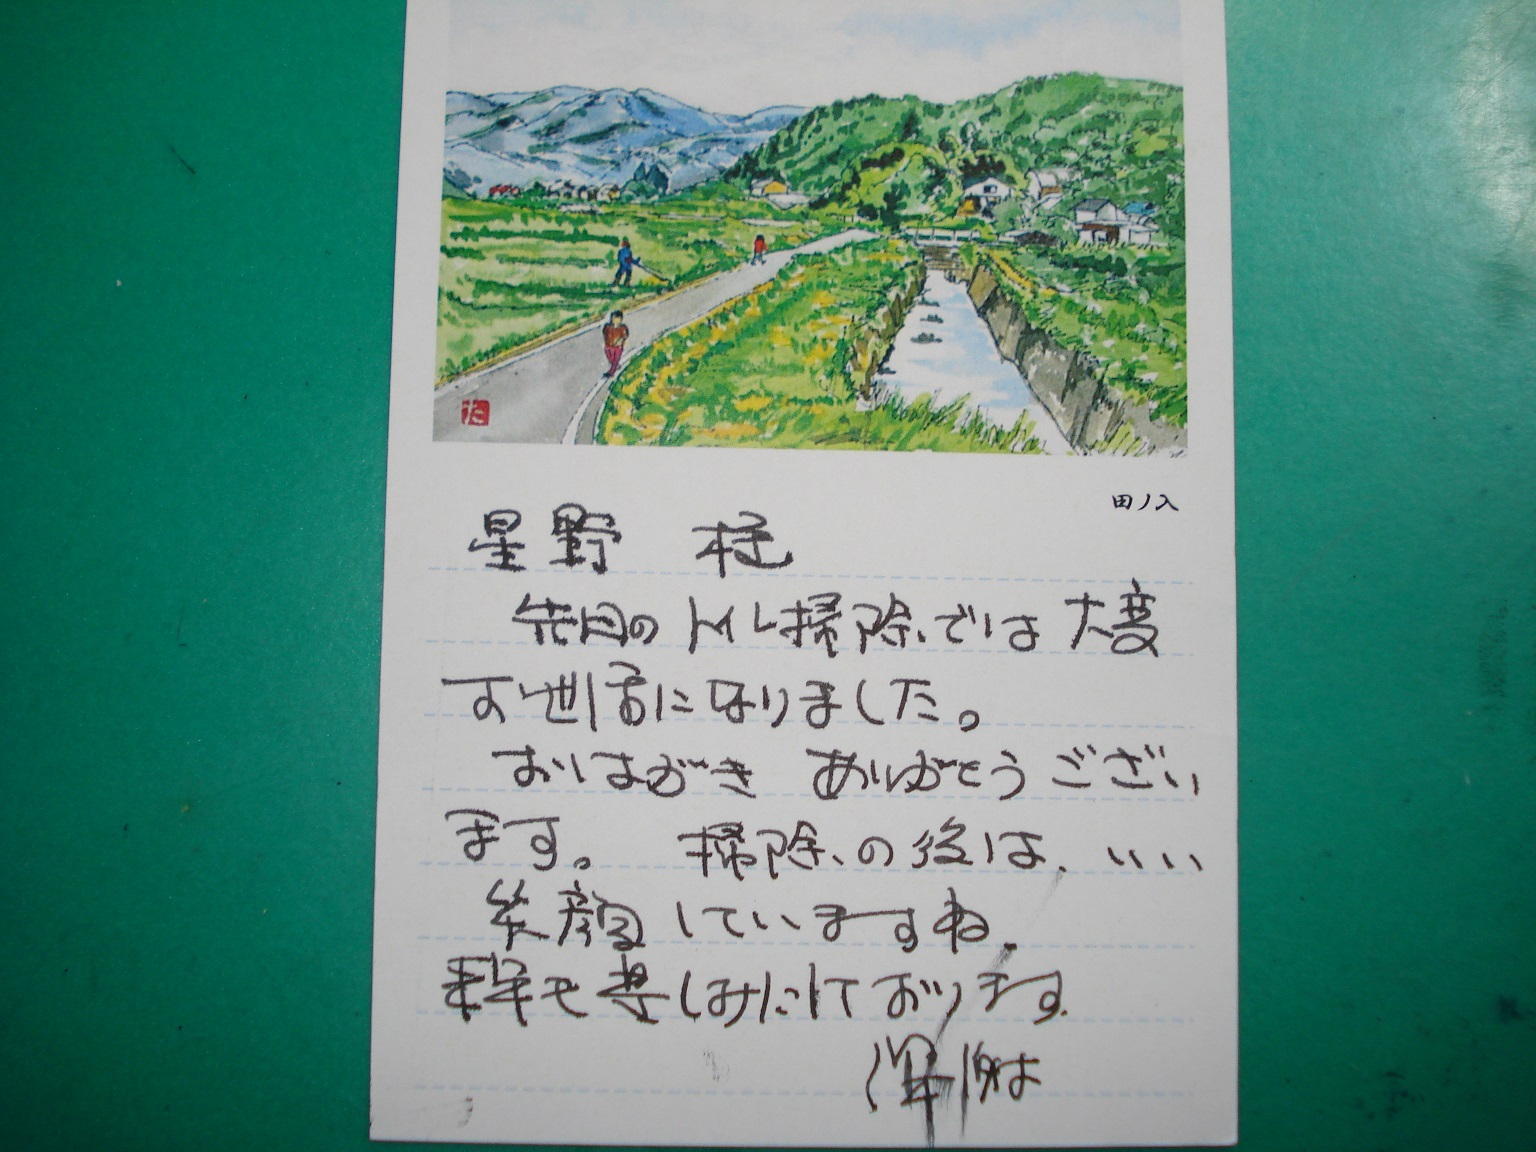 た
田ノ入
星野 様
先日のトイレ掃除では大変
お世話になりました。
おはがき ありがとうござい
ます。 掃除の後は、いい
笑顔していますね。
も楽しみにして おります。